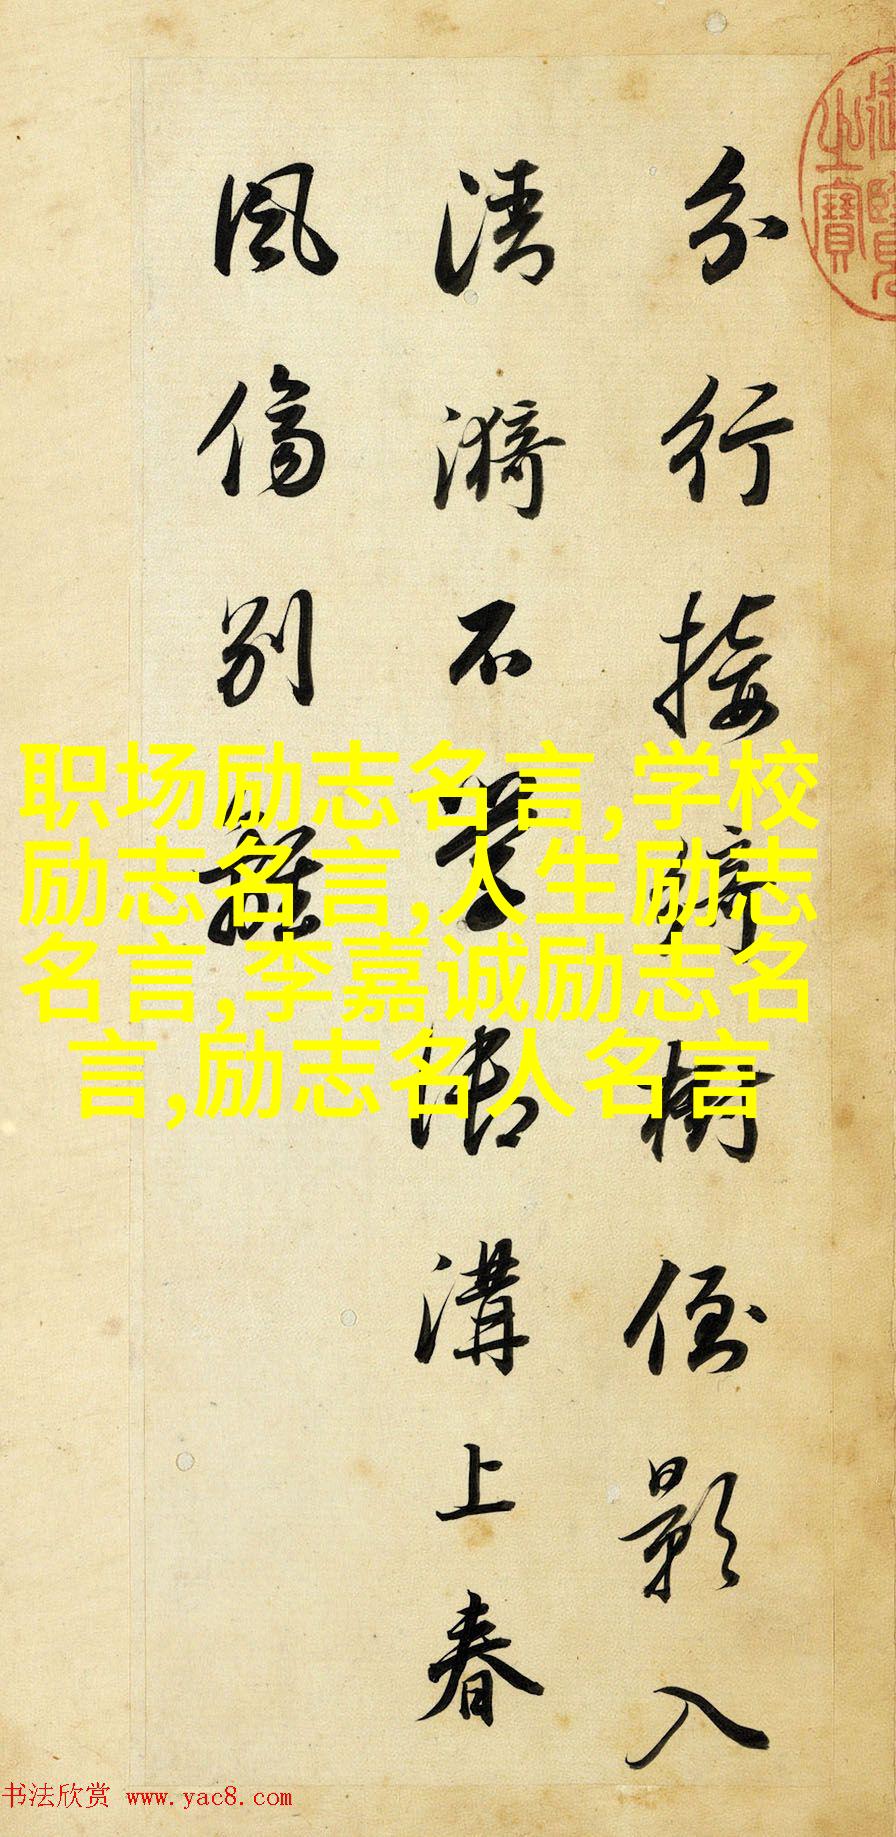 御覽
之寶
分行接綺樹倒影入
清漪不學御溝上春
風傷別離
职场励志名言,学校
励志名言,人生励志
名言,李嘉诚励志名
言,励志名人名言
书法欣赏 www.yac8.com